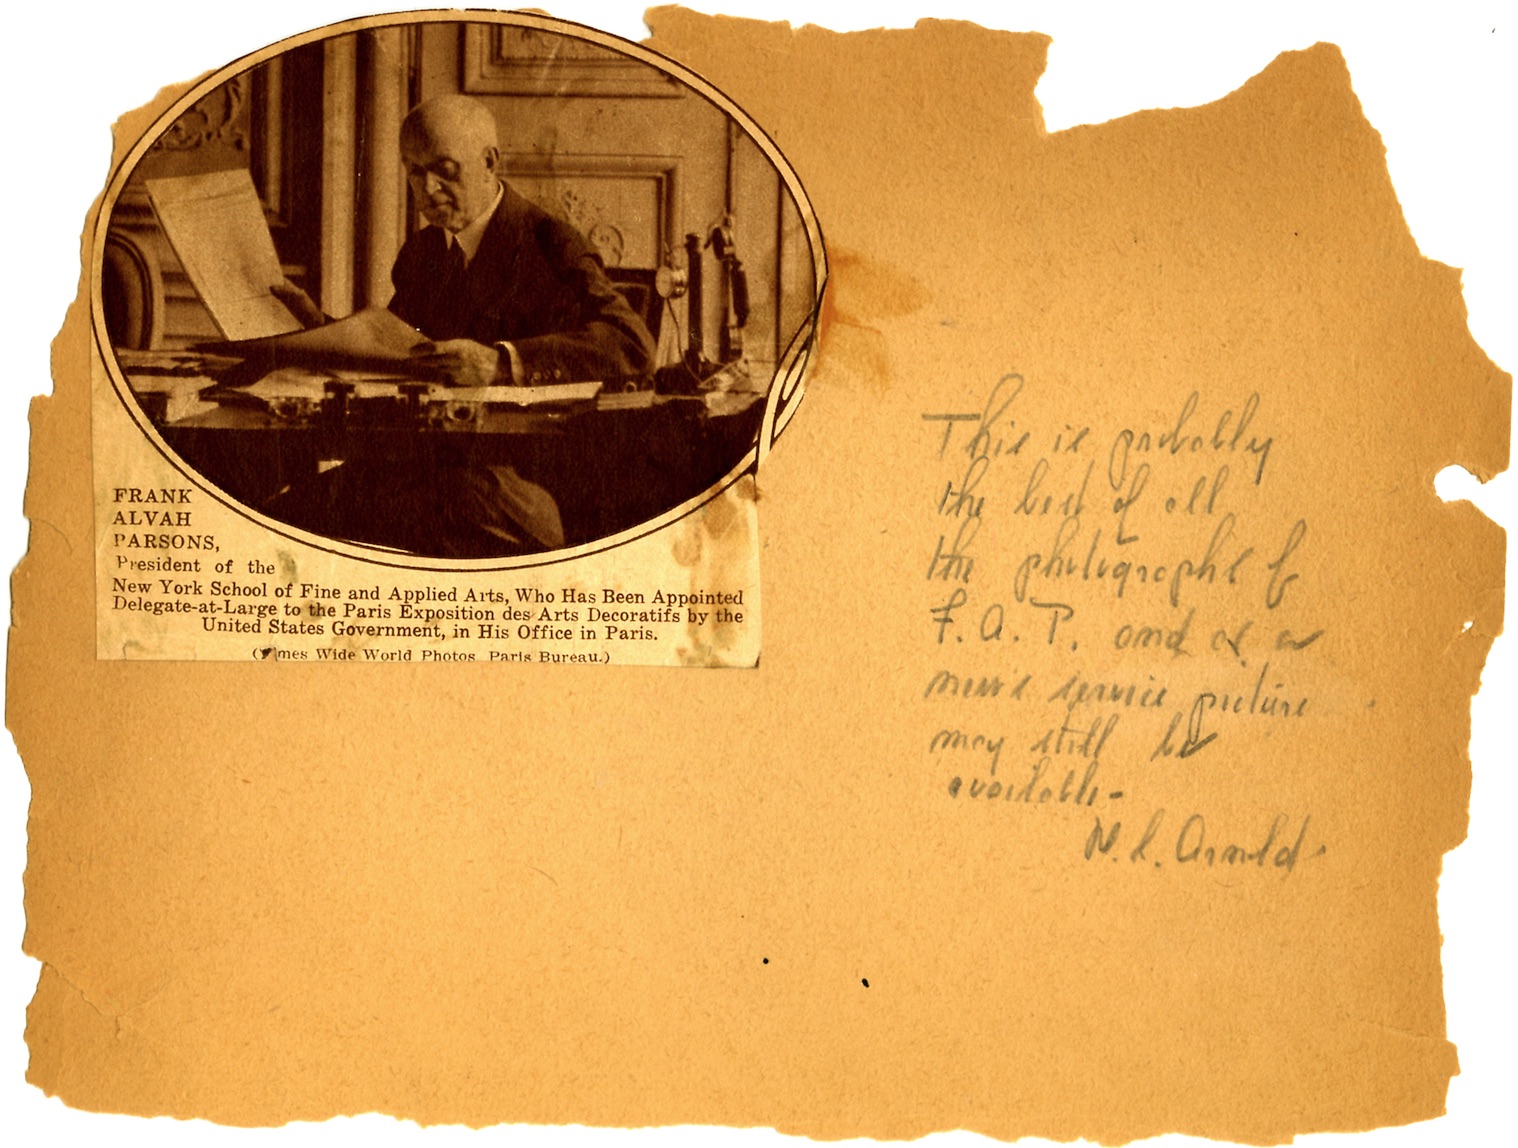 FRANK
ALVAH
PARSONS,
President of the
New York School of Fine and Applied Arts, Who Has Been Appointed
Delegate-at-Large to the Paris Exposition des Arts Decoratifs by the
United States Government, in His Office in Paris.
(Times Wide World Photos Paris Bureau.)
This is probably
the best of all
the photographs of
F. A. P. and as a
news service picture
may still be
available-
N. L. Arnold.